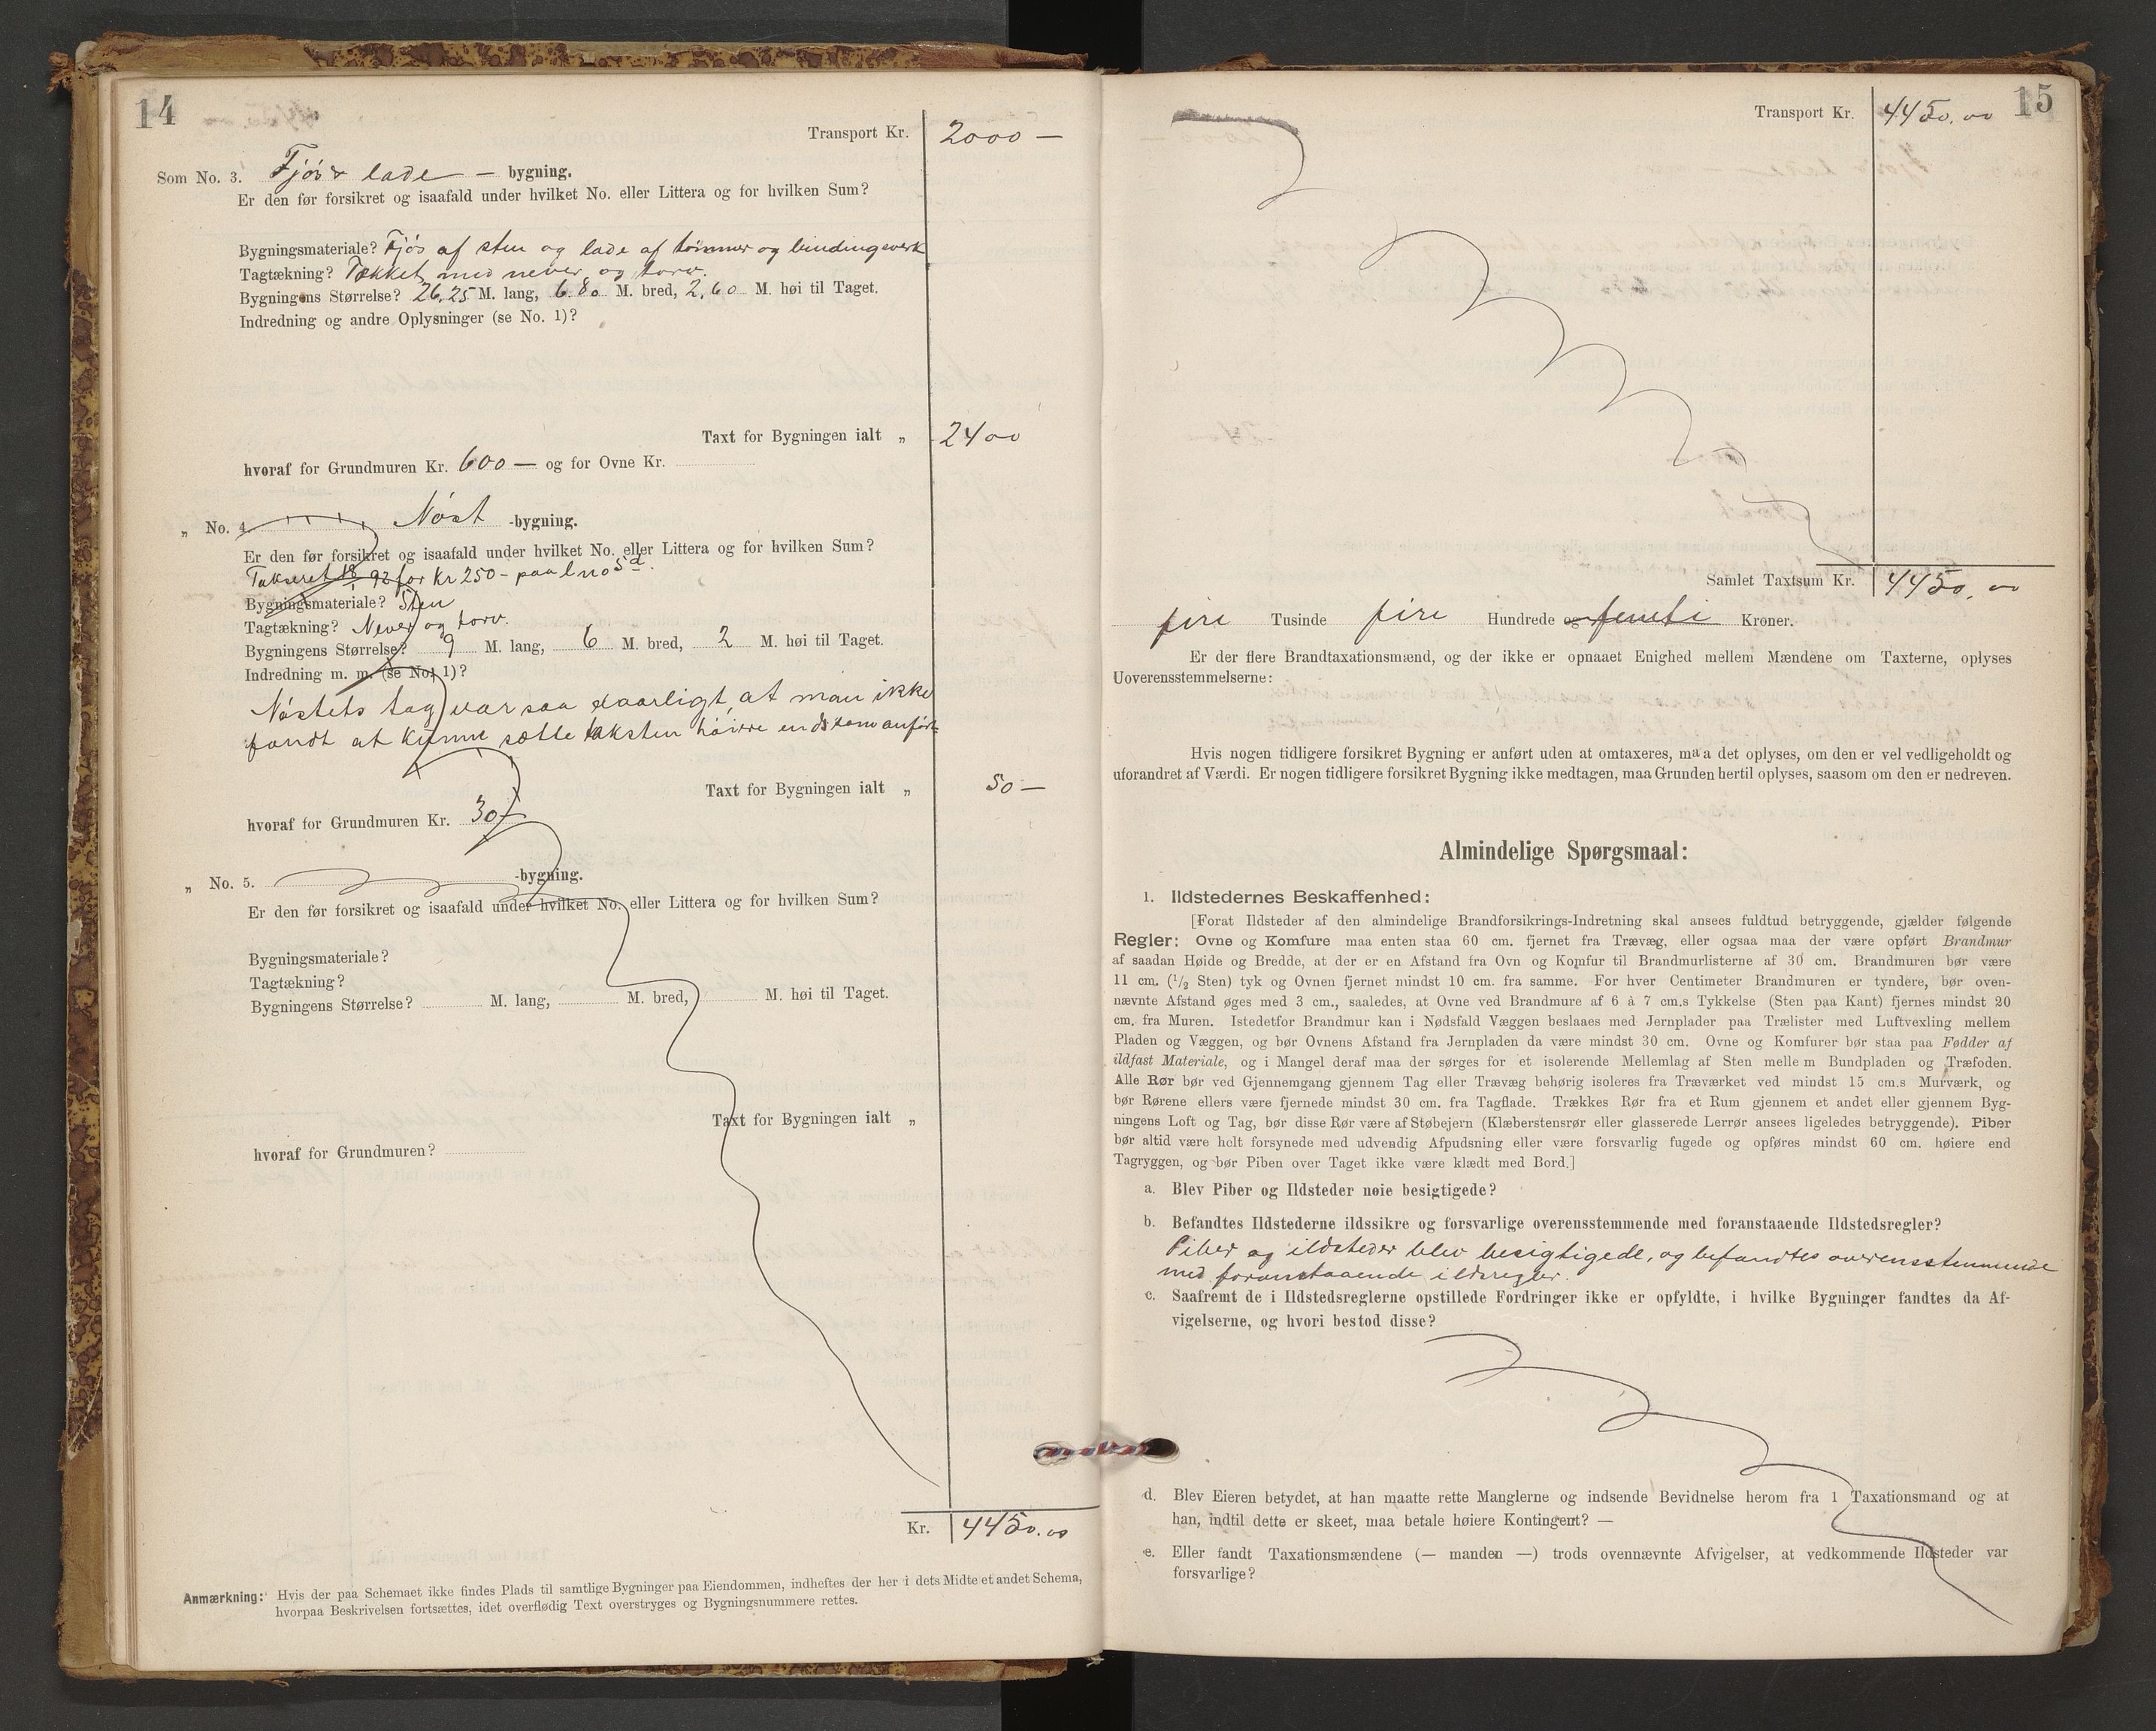 14
Transport Kr. 2000 —
Som No. 3. Fjös & lade — bygning.
Er den før forsikret og isaafald under hvilket No. eller Littera og for hvilken Sum?
Bygningsmateriale? Fjös af sten og lade af tömmer og bindingsverk
Tagtækning? Tækket med never og torv.
Bygningens Størrelse? 26,25 M. lang, 6.80 M. bred, 2,60 M. høi til Taget.
Indredning og andre Oplysninger (se No. 1)?
Taxt for Bygningen ialt „ 2400
hvoraf for Grundmuren Kr. 600 — og for Ovne Kr.
„ No. 4. Nöst -bygning.
Er den før forsikret og isaafald under hvilket No. eller Littera og for hvilken Sum?
Takseret 92 for Kr 250 - paa l no 5 d.
Bygningsmateriale? Sten
Tagtækning? Never og torv.
Bygningens Størrelse? 9 M. lang, 6 M. bred, 2 M. høi til Taget.
Indredning m. m. (se No. 1)?
Nöstets tag var saa daarligt, at man ikke
fandt at kunne sætte taksten höire end som anfört
Taxt for Bygningen ialt „ 50 —
hvoraf for Grundmuren Kr. 30
„ No. 5. -bygning.
Er den før forsikret og isaafald under hvilket No. eller Littera og for hvilken Sum?
Bygningsmateriale?
Tagtækning?
Bygningens Størrelse? M. lang, M. bred, M. høi til Taget.
Taxt for Bygningen ialt „
hvoraf for Grundmuren?
Kr. 4450.00
Anmærkning: Hvis der paa Schemaet ikke findes Plads til samtlige Bygninger paa Eiendommen, indheftes der her i dets Midte et andet Schema,
hvorpaa Beskrivelsen fortsættes, idet overflødig Text overstryges og Bygningsnummere rettes.
15
Transport Kr. 4450.00
Samlet Taxtsum Kr. 4450.00
fire Tusinde fire Hundrede og femti Kroner.
Er der flere Brandtaxationsmænd, og der ikke er opnaaet Enighed mellem Mændene om Taxterne, oplyses
Uoverensstemmelserne:
Hvis nogen tidligere forsikret Bygning er anført uden at omtaxeres, maa det oplyses, om den er vel vedligeholdt og
uforandret af Værdi. Er nogen tidligere forsikret Bygning ikke medtagen, maa Grunden hertil oplyses, saasom om den er nedreven.
Almindelige Spørgsmaal:
1. Ildstedernes Beskaffenhed:
[Forat Ildsteder af den almindelige Brandforsikrings-Indretning skal ansees fuldtud betryggende, gjælder følgende
Regler: Ovne og Komfure maa enten staa 60 cm. fjernet fra Trævæg, eller ogsaa maa der være opført Brandmur
af saadan Høide og Bredde, at der er en Afstand fra Ovn og Komfur til Brandmurlisterne af 30 cm. Brandmuren bør være
11 cm. (1/2 Sten) tyk og Ovnen fjernet mindst 10 cm. fra samme. For hver Centimeter Brandmuren er tyndere, bør oven-
nævnte Afstand øges med 3 cm., saaledes, at Ovne ved Brandmure af 6 à 7 cm.s Tykkelse (Sten paa Kant) fjernes mindst 20
cm. fra Muren. Istedetfor Brandmur kan i Nødsfald Væggen beslaaes med Jernplader paa Trælister med Luftvexling mellem
Pladen og Væggen, og bør Ovnens Afstand fra Jernpladen da være mindst 30 cm. Ovne og Komfurer bør staa paa Fødder af
ildfast Materiale, og i Mangel deraf maa der sørges for et isolerende Mellemlag af Sten mellem Bundpladen og Træfoden.
Alle Rør bør ved Gjennemgang gjennem Tag eller Trævæg behørig isoleres fra Træværket ved mindst 15 cm.s Murværk, og
bør Rørene ellers være fjernede mindst 30 cm. fra Tagflade. Trækkes Rør fra et Rum gjennem et andet eller gjennem Byg-
ningens Loft og Tag, bør disse Rør være af Støbejern (Klæberstensrør eller glasserede Lerrør ansees ligeledes betryggende). Piber
bør altid være helt forsynede med udvendig Afpudsning eller være forsvarlig fugede og opføres mindst 60 cm. høiere end
Tagryggen, og bør Piben over Taget ikke være klædt med Bord.]
a. Blev Piber og Ildsteder nøie besigtigede?
b. Befandtes Ildstederne ildssikre og forsvarlige overensstemmende med foranstaaende Ildstedsregler?
Piber og ildsteder blev besigtigede, og befandtes overensstemmende
med foranstaaende ildsregler.
c. Saafremt de i Ildstedsreglerne opstillede Fordringer ikke er opfyldte, i hvilke Bygninger fandtes da Af-
vigelserne, og hvori bestod disse?
d. Blev Eieren betydet, at han maatte rette Manglerne og indsende Bevidnelse herom fra 1 Taxationsmand og at
han, indtil dette er skeet, maa betale høiere Kontingent? —
e. Eller fandt Taxationsmændene (— manden —) trods ovennævnte Afvigelser, at vedkommende Ildsteder var
forsvarlige?